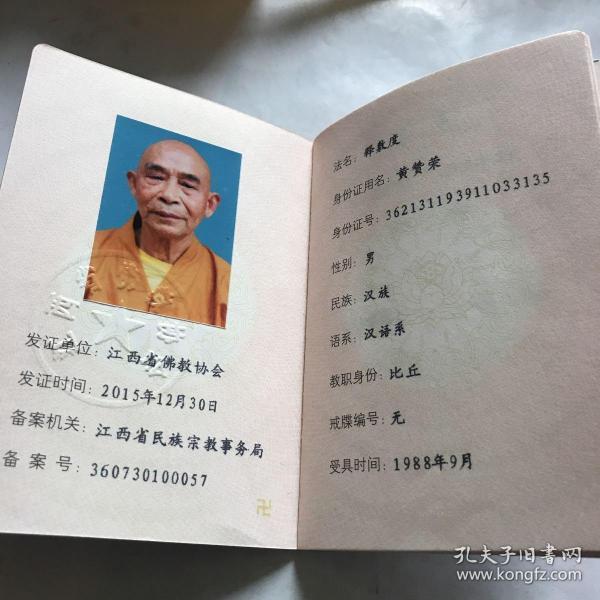 发证单位：江西省佛教协会
发证时间：2015年12月30日
备案机关：江西省民族宗教事务局
备案号：360730100057
卍
法名：释教度
身份证用名：黄赞荣
身份证号：362131193911033135
性别：男
民族：汉族
语系：汉语系
教职身份：比丘
戒牒编号：无
受具时间：1988年9月
孔夫子旧书网
www.kongfz.com